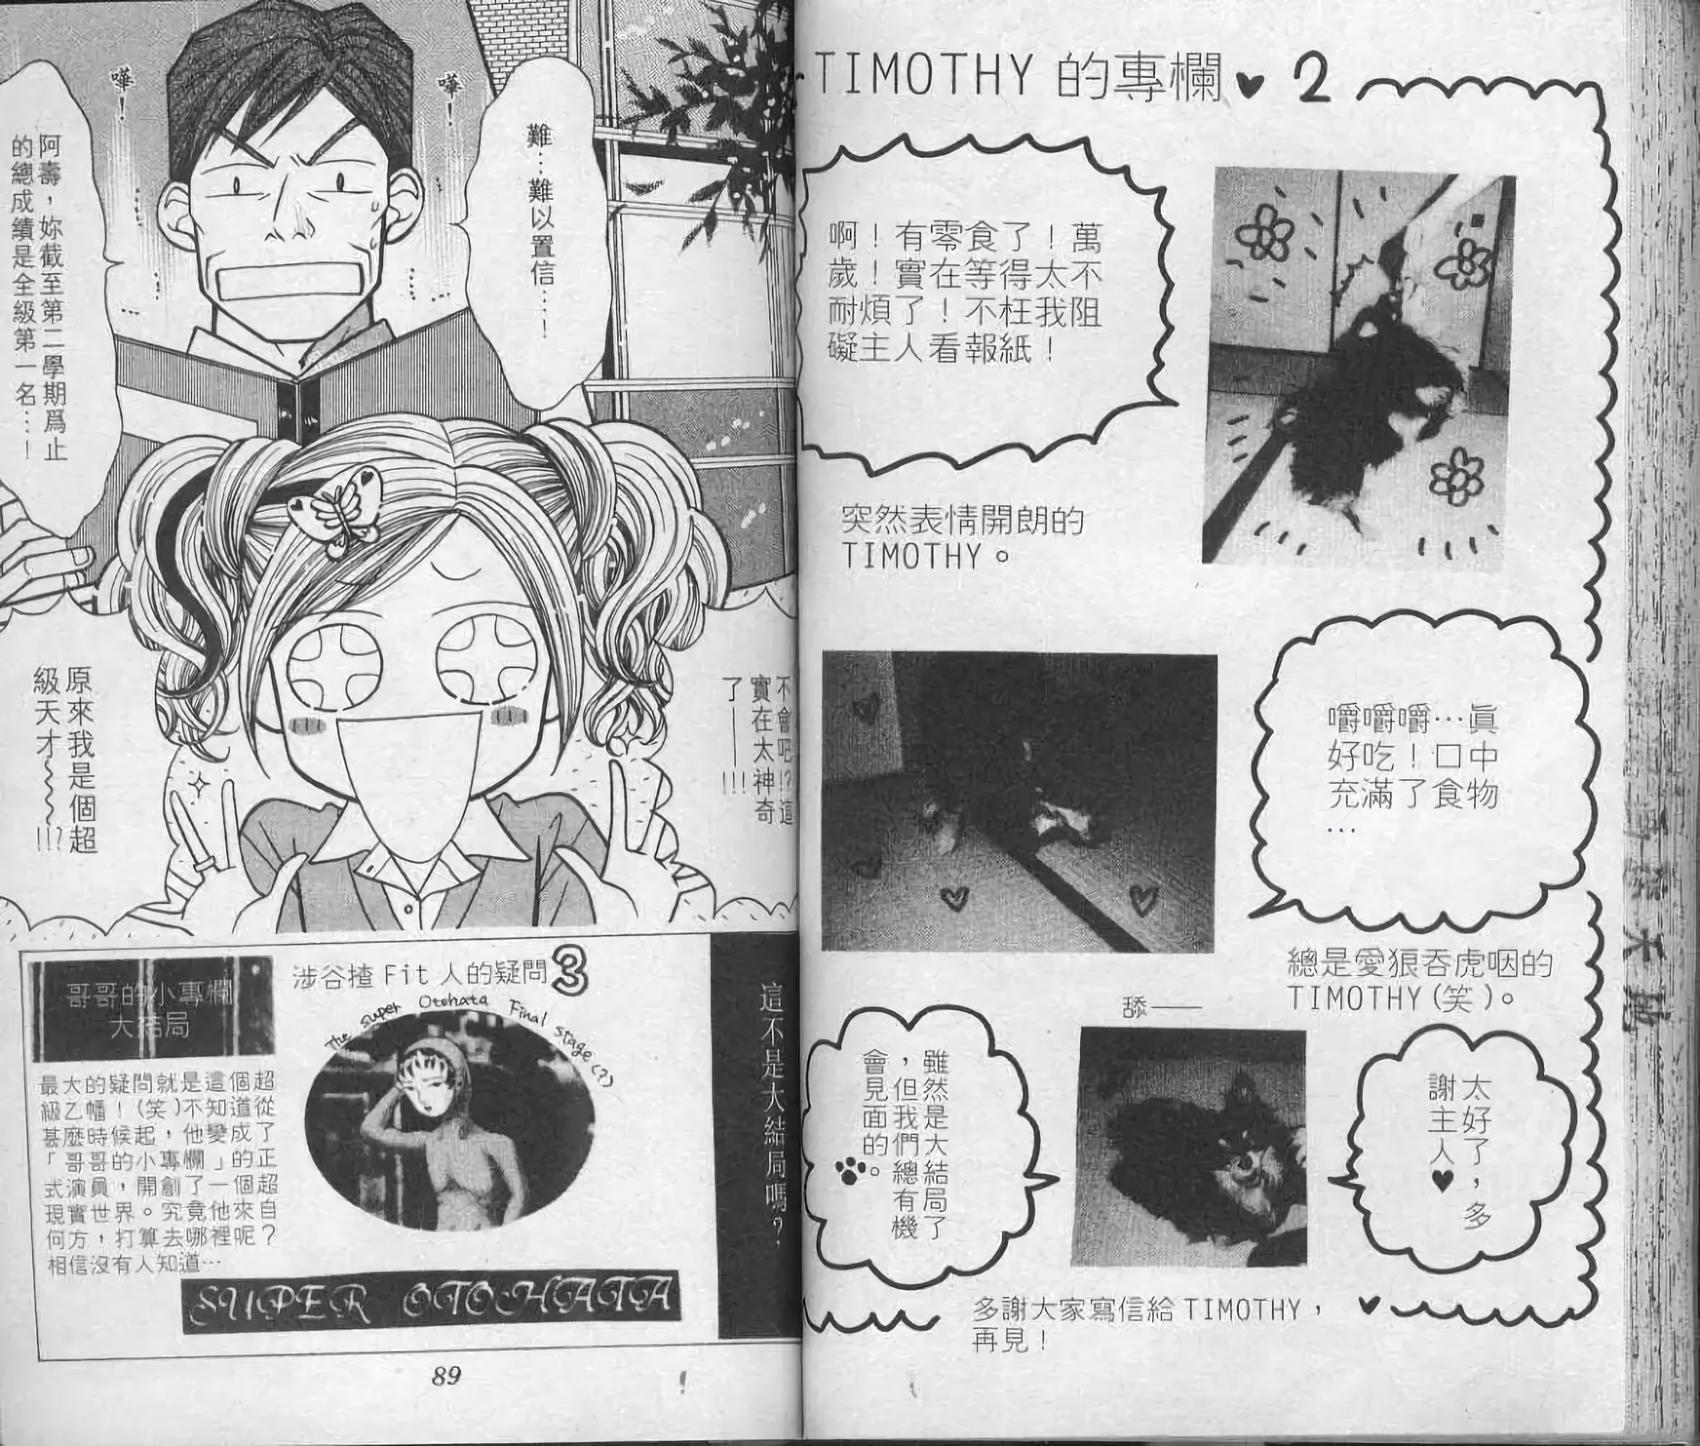 TIMOTHY 的專欄♥2
啊！有零食了！萬
歲！實在等得太不
耐煩了！不枉我阻
礙主人看報紙！
突然表情開朗的
TIMOTHY。
嚼嚼嚼…眞
好吃！口中
充滿了食物
…
總是愛狼吞虎咽的
TIMOTHY(笑)。
舔——
太好了，多
謝主人♥
雖然是大結局了
，但我們總有機
會見面的。
多謝大家寫信給 TIMOTHY，
再見！
嘩！
嘩！
難…難以置信…！
阿壽，妳截至第二學期爲止
的總成績是全級第一名…！
不會吧!?這
實在太神奇
了——!!!
原來我是個超
級天才~~~!!!?
這不是大結局嗎？
哥哥的小專欄
大結局
涉谷揸 Fit 人的疑問3
The super Otohata Final stage(?)
最大的疑問就是這個超
級乙幡！(笑)不知道從
甚麼時候起，他變成了
「哥哥的小專欄」的正
式演員，開創了一個超
現實世界。究竟他來自
何方，打算去哪裡呢？
相信沒有人知道…
SUPER OTOHATA
89